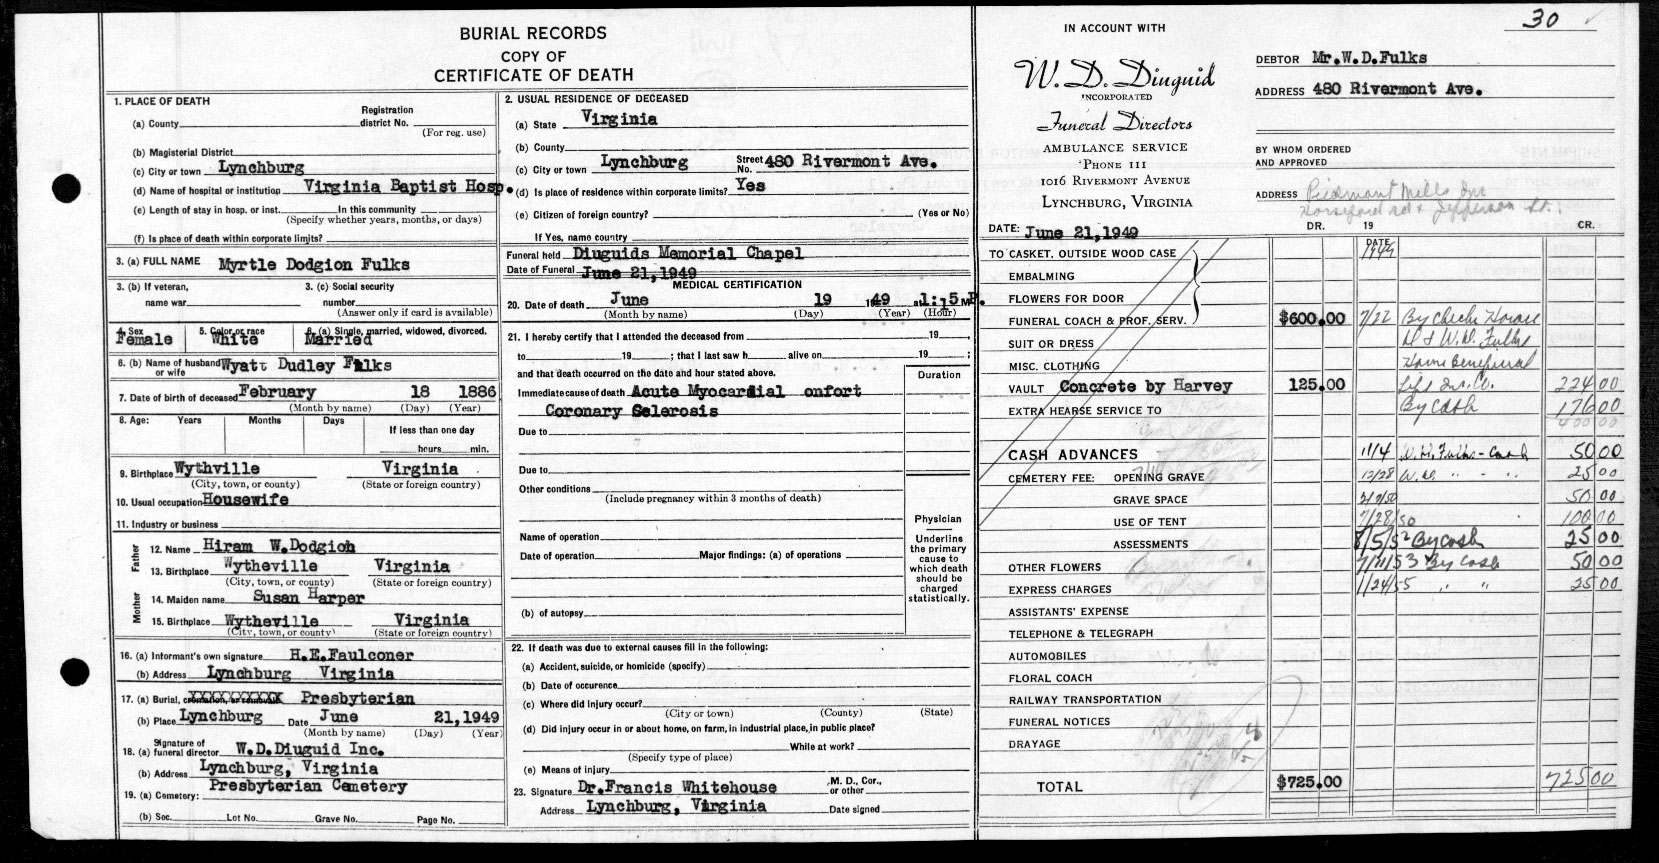 BURIAL RECORDS
COPY OF
CERTIFICATE OF DEATH
1. PLACE OF DEATH
(a) County
Registration district No.
(For reg. use)
(b) Magisterial District
(c) City or town Lynchburg
(d) Name of hospital or institution Virginia Baptist Hosp.
(e) Length of stay in hosp. or inst. In this community
(Specify whether years, months, or days)
(f) Is place of death within corporate limits?
3. (a) FULL NAME Myrtle Dodgion Fulks
3. (b) If veteran, name war
3. (c) Social security number
(Answer only if card is available)
4. Sex Female
5. Color or race White
6. (a) Single, married, widowed, divorced. Married
6. (b) Name of husband or wife Wyatt Dudley Fulks
7. Date of birth of deceased February 18 1886
(Month by name) (Day) (Year)
8. Age: Years Months Days If less than one day
hours min.
9. Birthplace Wythville Virginia
(City, town, or county) (State or foreign country)
10. Usual occupation Housewife
11. Industry or business
Father
12. Name Hiram W.Dodgion
13. Birthplace Wytheville Virginia
(City, town, or county) (State or foreign country)
Mother
14. Maiden name Susan Harper
15. Birthplace Wytheville Virginia
(City, town, or county) (State or foreign country)
16. (a) Informant's own signature H.E.Faulconer
(b) Address Lynchburg Virginia
17. (a) Burial, cremation, or removal XXXXXXXXXX Presbyterian
(b) Place Lynchburg Date June 21,1949
(Month by name) (Day) (Year)
18. (a) Signature of funeral director W.D.Diuguid Inc.
(b) Address Lynchburg, Virginia
19. (a) Cemetery: Presbyterian Cemetery
(b) Sec. Lot No. Grave No. Page No.
2. USUAL RESIDENCE OF DECEASED
(a) State Virginia
(b) County
(c) City or town Lynchburg Street No. 480 Rivermont Ave.
(d) Is place of residence within corporate limits? Yes
(e) Citizen of foreign country? (Yes or No)
If Yes, name country
Funeral held Diuguids Memorial Chapel
Date of Funeral June 21,1949
MEDICAL CERTIFICATION
20. Date of death June 19 1949 at 1:15 M P.
(Month by name) (Day) (Year) (Hour)
21. I hereby certify that I attended the deceased from 19
to 19 ; that I last saw h alive on 19 ;
and that death occurred on the date and hour stated above.
Duration
Immediate cause of death Acute Myocardial onfort
Coronary Sclerosis
Due to
Due to
Other conditions
(Include pregnancy within 3 months of death)
Name of operation
Date of operation Major findings: (a) of operations
(b) of autopsy
Physician
Underline
the primary
cause to
which death
should be
charged
statistically.
22. If death was due to external causes fill in the following:
(a) Accident, suicide, or homicide (specify)
(b) Date of occurence
(c) Where did injury occur?
(City or town) (County) (State)
(d) Did injury occur in or about home, on farm, in industrial place, in public place?
While at work?
(Specify type of place)
(e) Means of injury
23. Signature Dr.Francis Whitehouse M. D., Cor., or other
Address Lynchburg, Virginia Date signed
30
IN ACCOUNT WITH
W. D. Diuguid
INCORPORATED
Funeral Directors
AMBULANCE SERVICE
PHONE 111
1016 RIVERMONT AVENUE
LYNCHBURG, VIRGINIA
DATE: June 21,1949
DEBTOR Mr.W.D.Fulks
ADDRESS 480 Rivermont Ave.
BY WHOM ORDERED
AND APPROVED
ADDRESS Piedmont Mills Inc
Horseford Rd & Jefferson St.
DR. 19 CR.
DATE
1949
TO CASKET, OUTSIDE WOOD CASE
EMBALMING
FLOWERS FOR DOOR
FUNERAL COACH & PROF. SERV. $600.00 7/22 By Check
& W.D. Fulks
SUIT OR DRESS
MISC. CLOTHING Home Beneficial
VAULT Concrete by Harvey 125.00 Life Ins. Co. 224 00
EXTRA HEARSE SERVICE TO By Cash 176 00
400 00
CASH ADVANCES 11/4 W.D. Fulks - Cash 50 00
CEMETERY FEE: OPENING GRAVE 12/28 W.D. " - " 25 00
GRAVE SPACE 50 00
USE OF TENT 7/28/50 100 00
ASSESSMENTS 8/5/52 By cash 25 00
OTHER FLOWERS 7/21/53 By Cash 50 00
EXPRESS CHARGES 1/24/55 " " 25 00
ASSISTANTS' EXPENSE
TELEPHONE & TELEGRAPH
AUTOMOBILES
FLORAL COACH
RAILWAY TRANSPORTATION
FUNERAL NOTICES
DRAYAGE
TOTAL $725.00 725 00